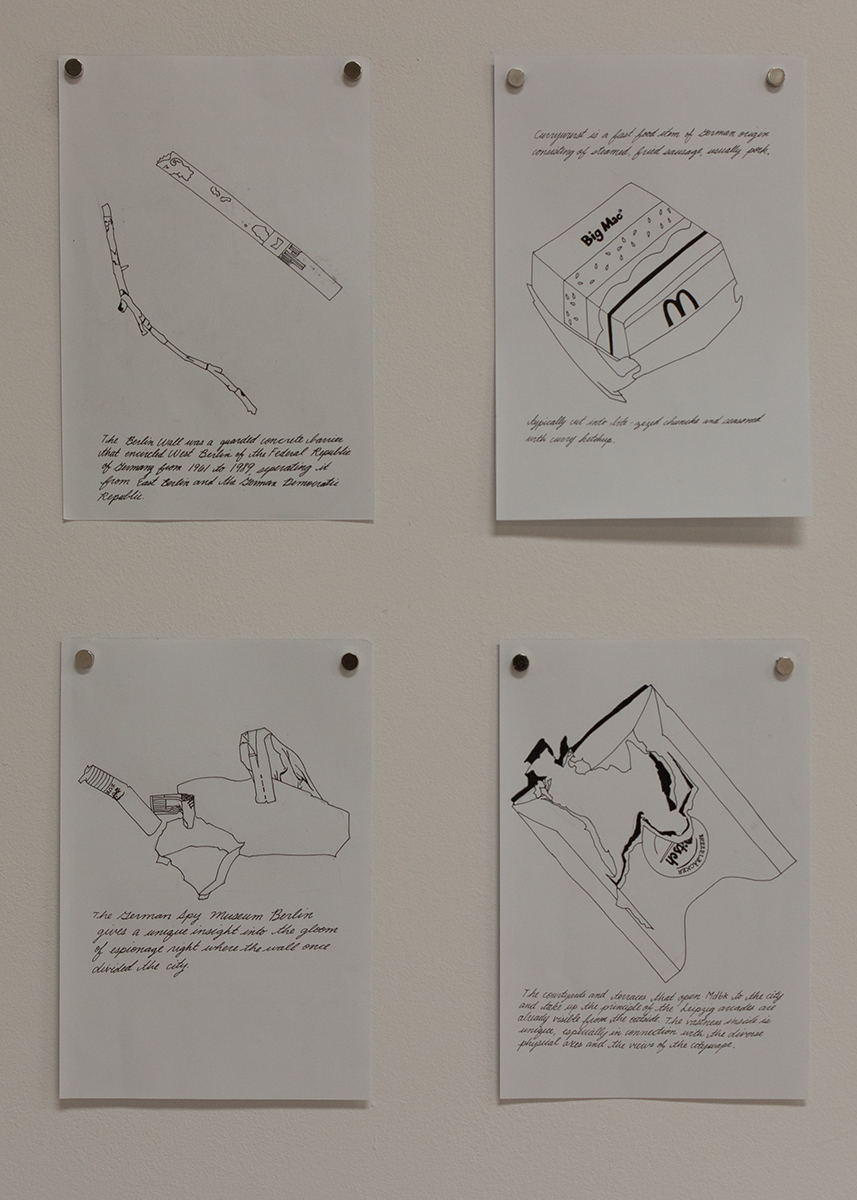 The Berlin Wall was a guarded concrete barrier
that encircled West Berlin of the Federal Republic
of Germany from 1961 to 1989, seperating it
from East Berlin and the German Democratic
Republic.
Currywurst is a fast food item of German origin
consisting of steamed, fried sausage, usually pork,
Big Mac
typically cut into bite-sized chuncks and seasoned
with curry ketchup.
The German Spy Museum Berlin
gives a unique insight into the gloom
of espionage right where the wall once
divided the city.
itsch
The courtyards and terraces that open MdbK to the city
and take up the principle of the Leipzig arcades are
already visible from the outside. The vastness inside is
unique, especially in connection with the diverse
physical axes and the views of the cityscape.